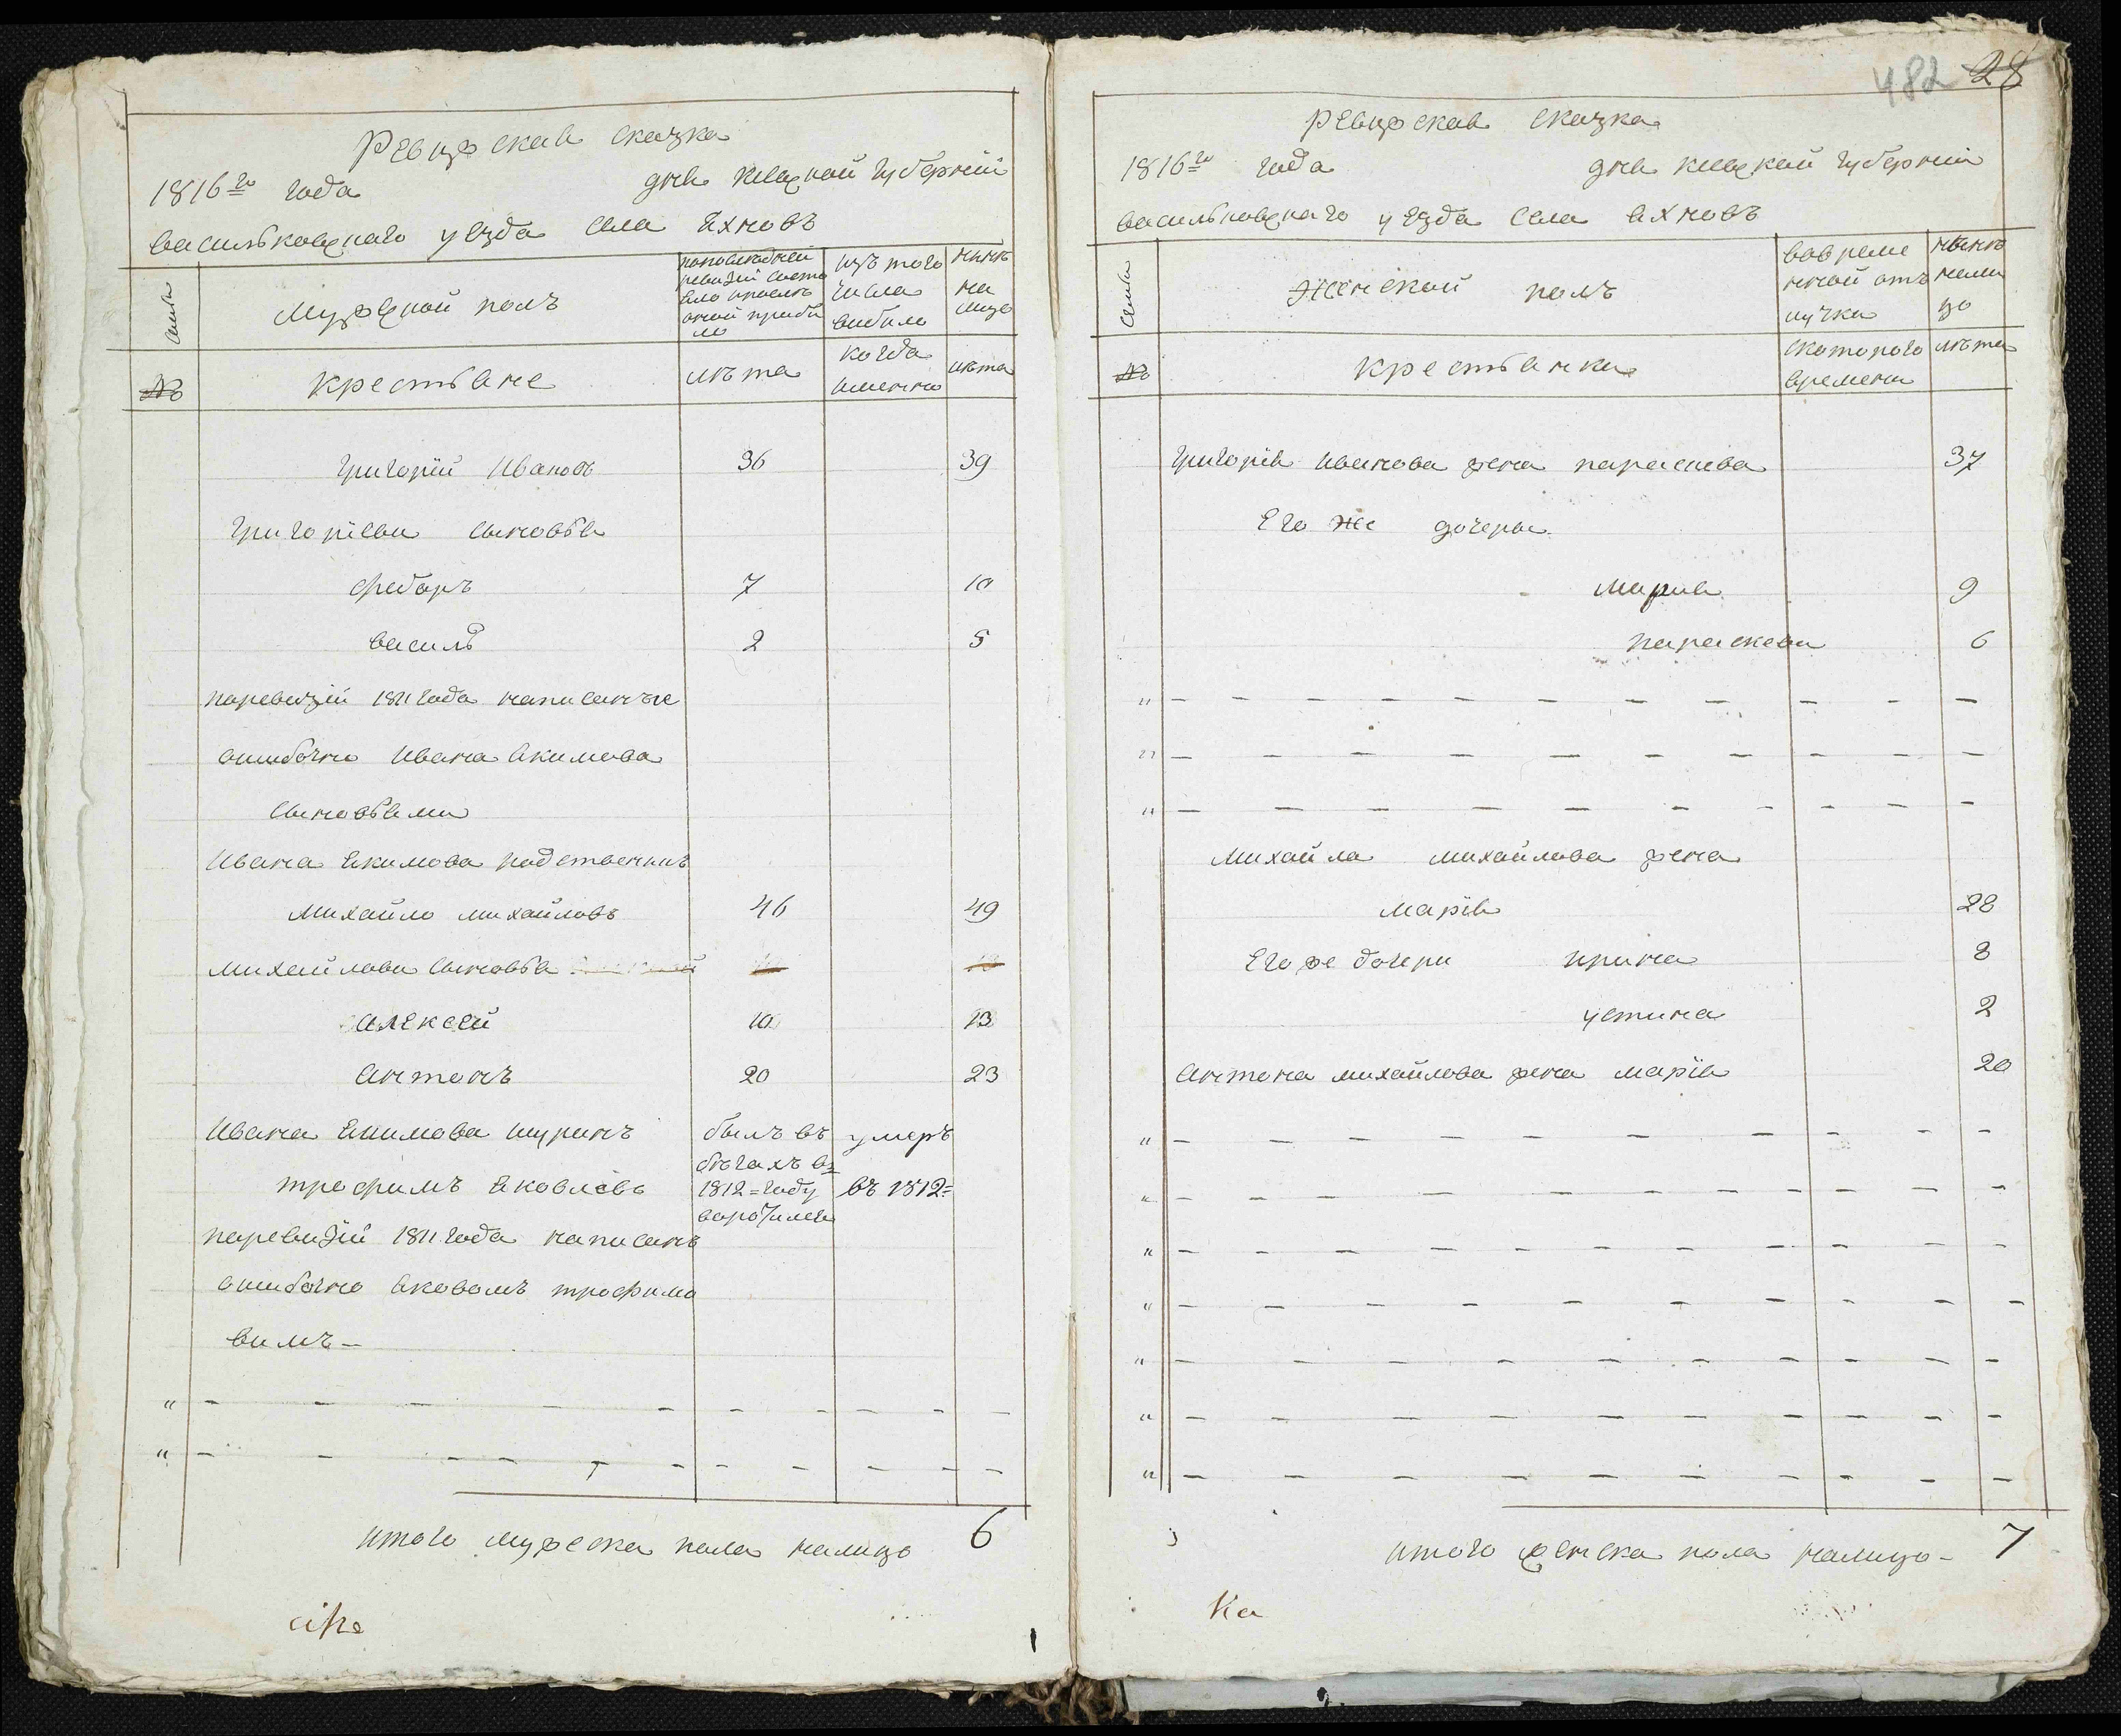 482 28
Ревизская сказка
1816го года дня Киевской губернiи
васильковскаго уезда села яхновъ
Семьи
Мужеской полъ
попоследней ревизiи состояло ипослѣ оной прибыло
изъ того числа выбыло
нынѣ на лицо
№
крестьяне
лѣта
когда имянно
лѣта
григорiй Ивановъ 36 39
григорiевы сыновья
федоръ 7 10
василь 2 5
поревизiи 1811 года написанъие
ошибочно Ивана Якимова
сыновьями
Ивана Якимова родственникъ
михайло михайловъ 46 49
михайловы сыновья
алексей 10 13
антонъ 20 23
Ивана Якимова шуринъ былъ въ умеръ
бѣгахъ въ
трофимъ Яковлевъ 1812= году въ 1812=
воротился
поревизiи 1811 года написанъ
ошибочно яковомъ трофимо
вымъ –
" – – – – – – – – – –
" – – – – – – – – – –
итого мужеска пола налицо 6
Ревизская сказка
1816го года дня киевской губернiи
васильковскаго уезда села яхновъ
Семьи
Женской полъ
вовременной отлучки
нынѣ налицо
№
крестьянки
скоторого времени
лѣта
григорiя иванова жена параскева 37
Его же дочеры
Мария 9
параскева 6
" – – – – – – – – – –
" – – – – – – – – – –
" – – – – – – – – – –
михайла михайлова жена
марiя 28
Его же дочери ирина 8
устина 2
Антона михайлова жена марiя 20
" – – – – – – – – – –
" – – – – – – – – – –
" – – – – – – – – – –
" – – – – – – – – – –
" – – – – – – – – – –
" – – – – – – – – – –
" – – – – – – – – – –
итого женска пола налицо – 7
Ка